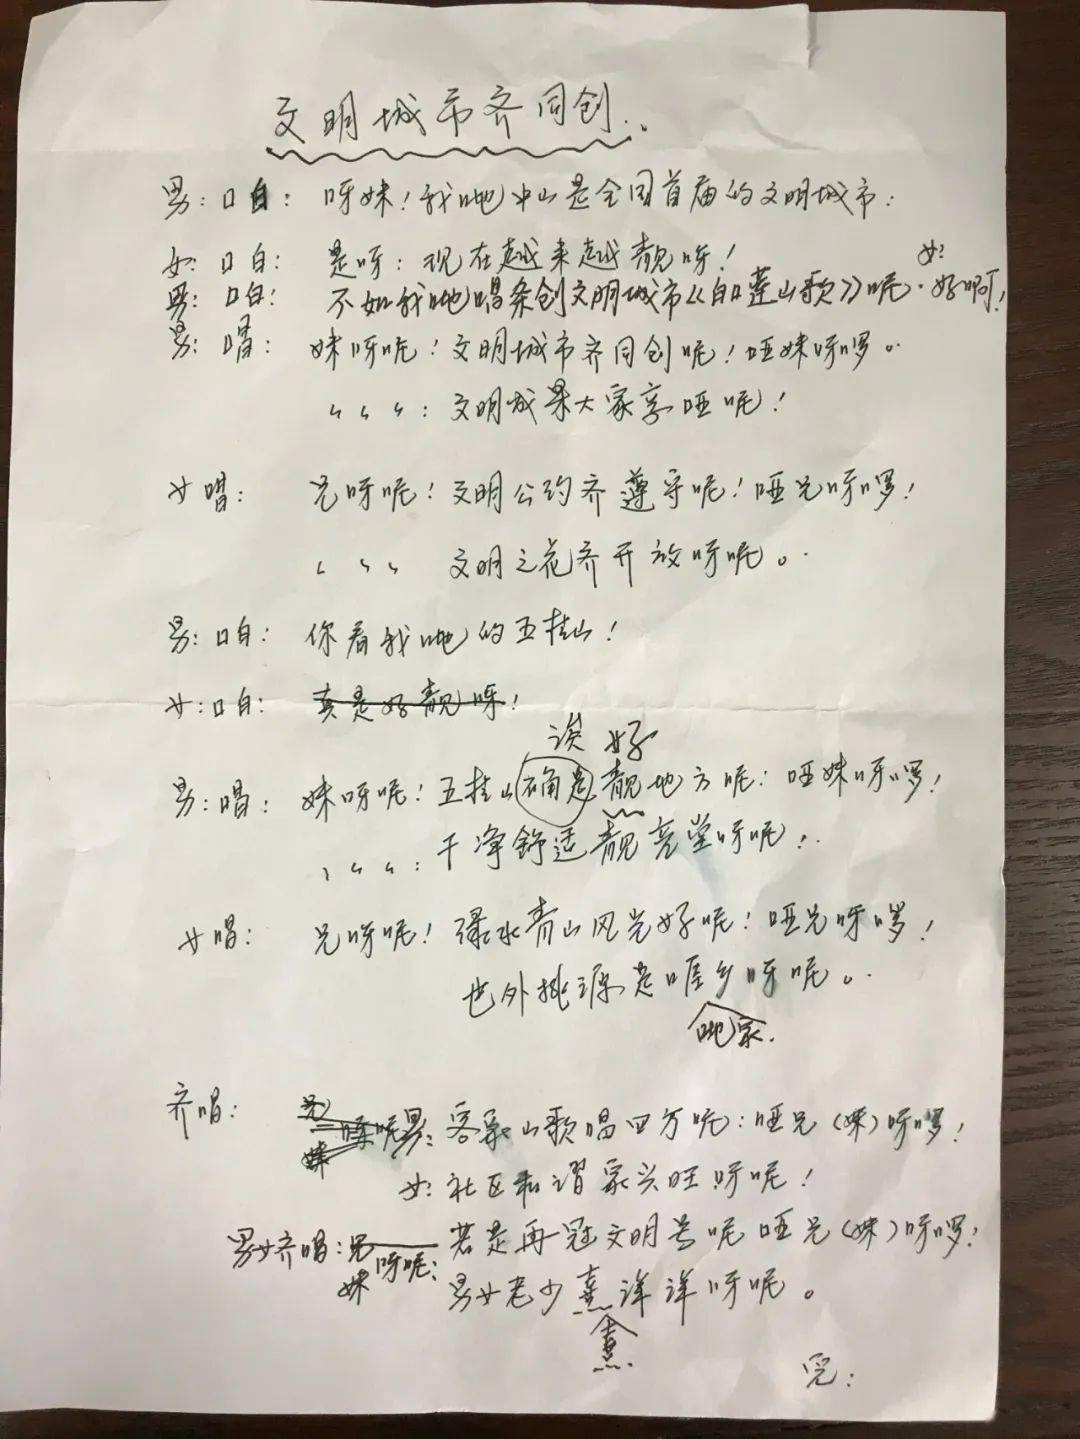 文明城市齐同创..
男:口白: 呀妹!我哋中山是全国首届的文明城市:
女:口白: 是呀:现在越来越靓呀!
男:口白: 不如我哋唱条创文明城市《白口莲山歌》呢·女:好啊!
男:唱: 妹呀呢!文明城市齐同创呢!哑妹呀啰。
〃〃〃:文明成果大家享哑呢!
女唱: 兄呀呢!文明公约齐遵守呢!哑兄呀啰!
〃〃〃 文明之花齐开放呀呢。
男:口白: 你看我哋的五桂山!
女:口白: 真是好靓呀!
诶 好
男:唱: 妹呀呢!五桂山确是靓地方呢:哑妹呀啰!
〃〃〃:干净舒适靓亮堂呀呢!
女唱: 兄呀呢!绿水青山风光好呢!哑兄呀啰!
世外桃源是喱乡呀呢。
哋家.
齐唱: 兄妹呀呢男:客家山歌唱四方呢:哑兄(妹)呀啰!
女:社区和谐家兴旺呀呢!
男女齐唱:兄妹呀呢:若是再冠文明号呢哑兄(妹)呀啰!
男女老少喜洋洋呀呢。
熹
完: